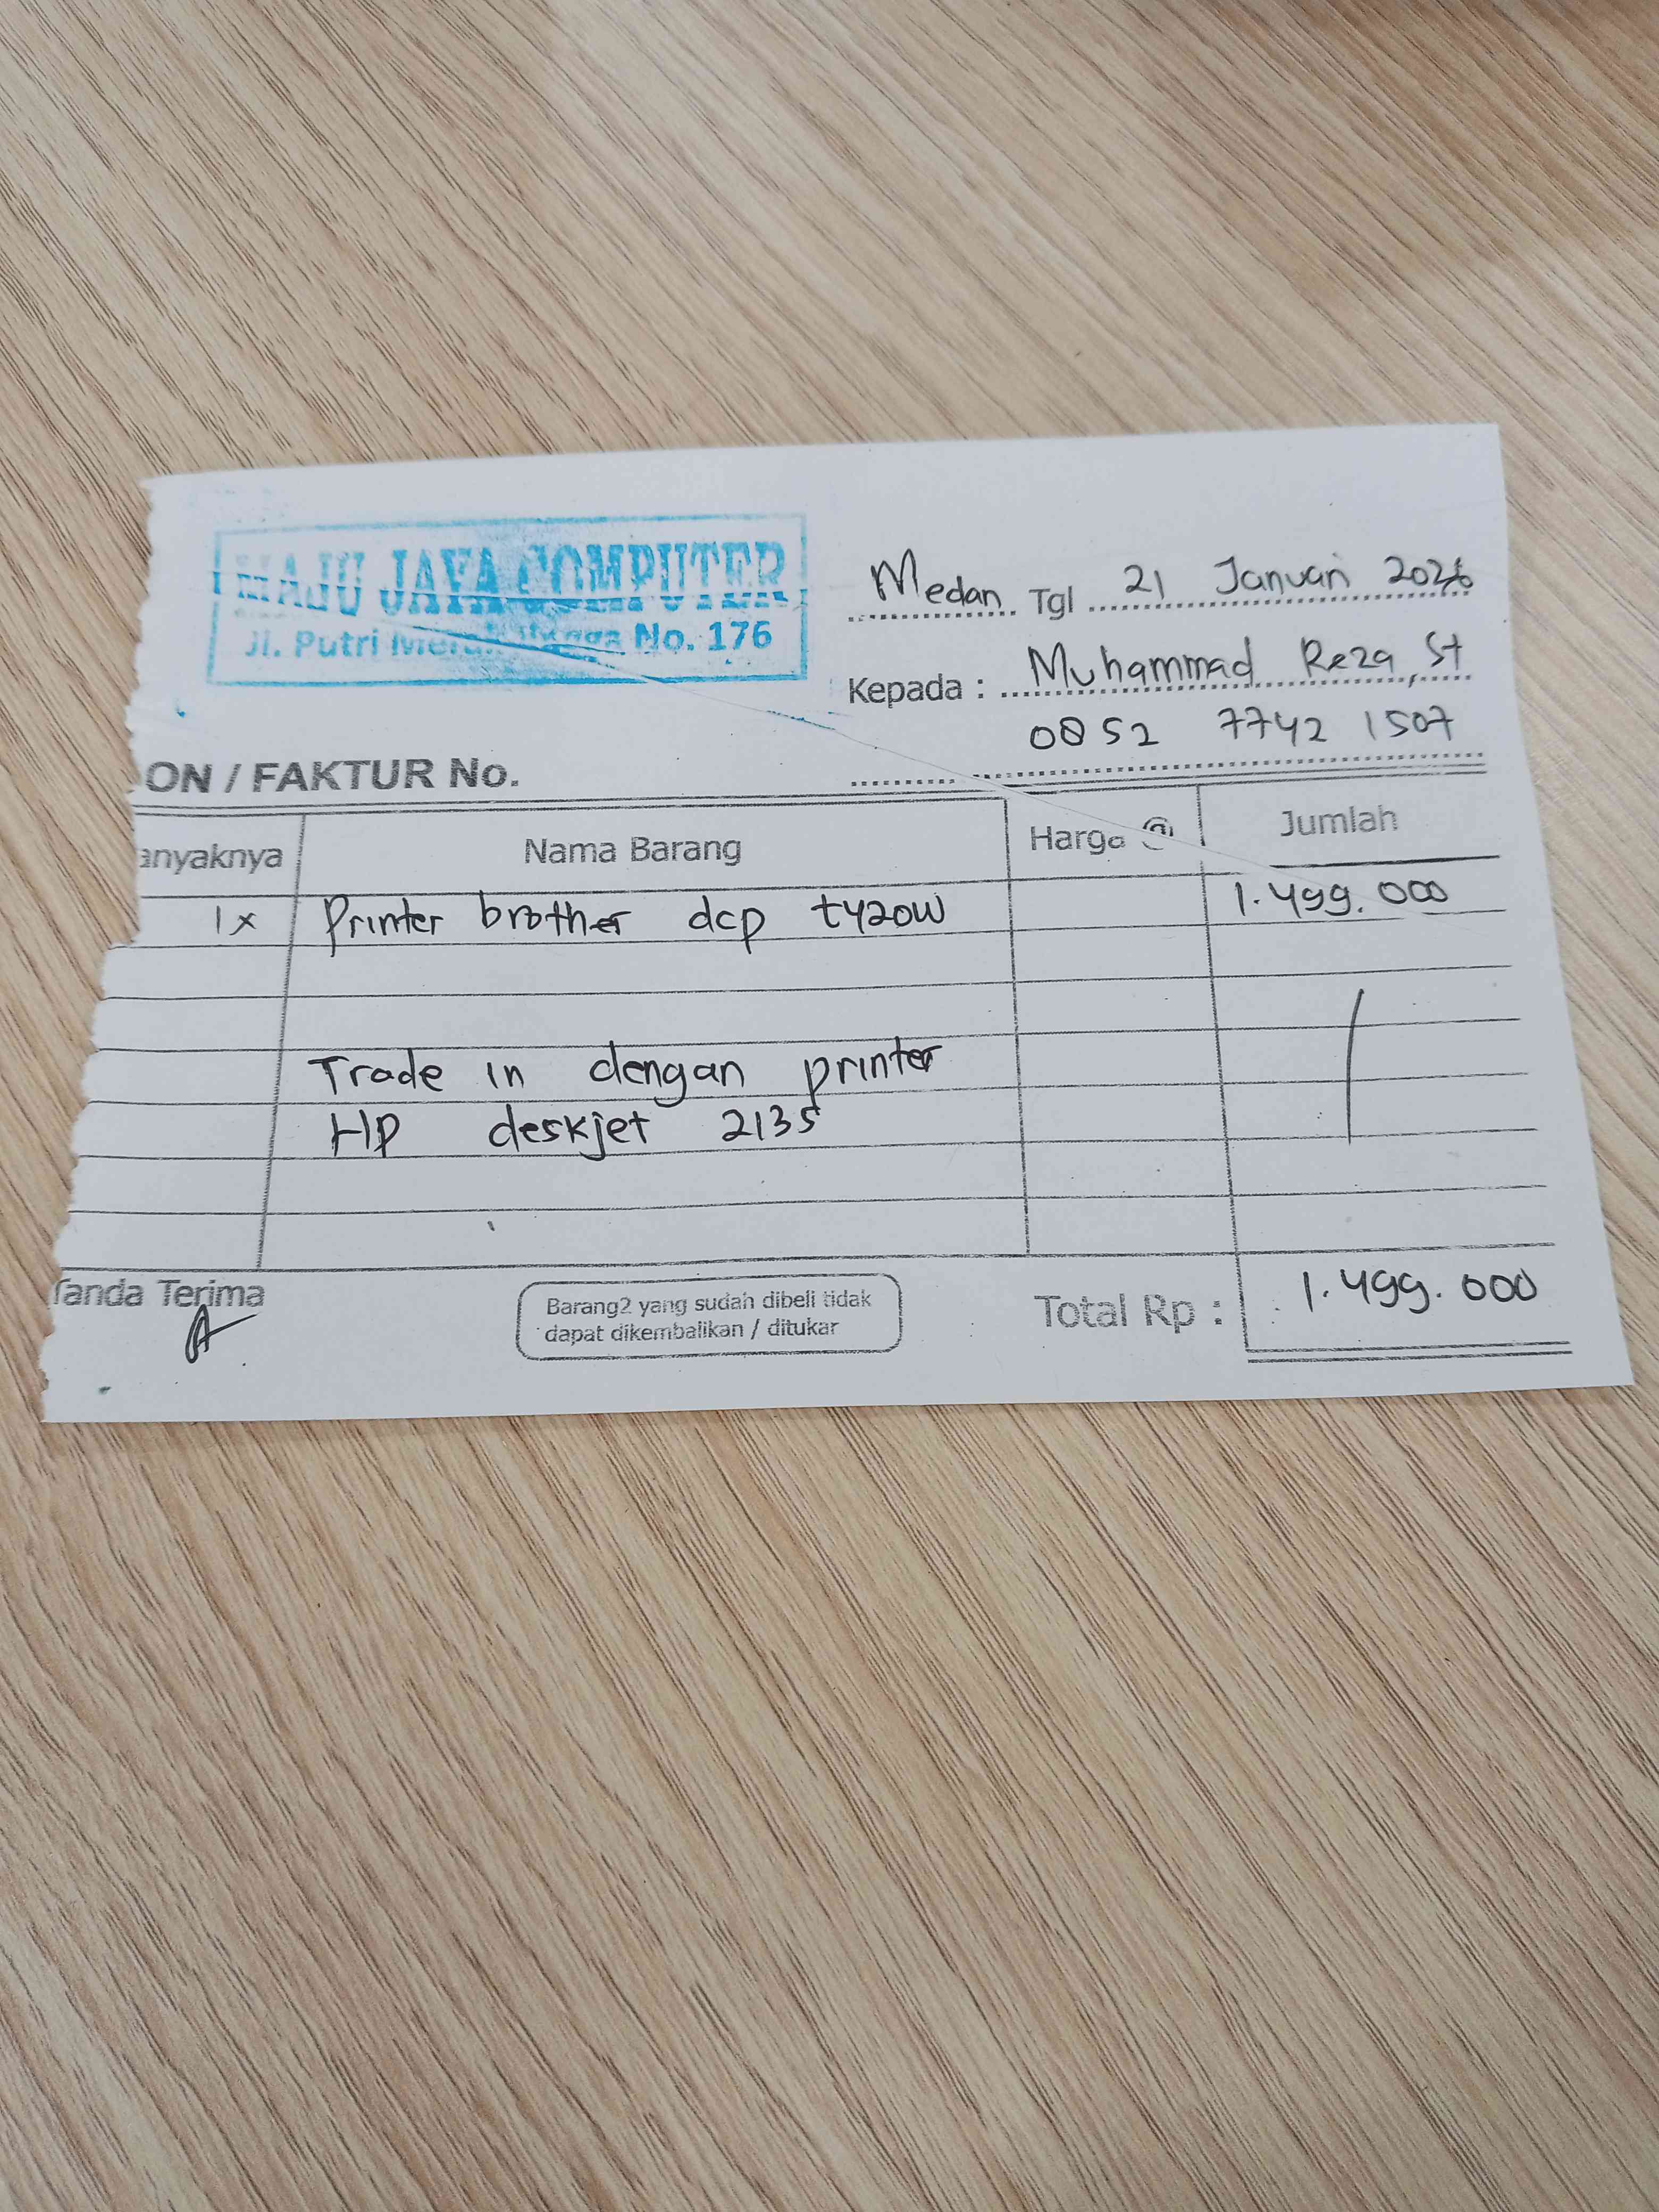 MAJU JAYA COMPUTER
Jl. Putri No. 176
Medan Tgl 21 Januari 2026
Kepada : Muhammad Reza, St
0852 7742 1507
ON / FAKTUR No.
anyaknya Nama Barang Harga @ Jumlah
1x Printer brother dcp t420w 1.499.000
Trade in dengan printer
HP deskjet 2135
Tanda Terima
Barang2 yang sudah dibeli tidak
dapat dikembalikan / ditukar
Total Rp : 1.499.000